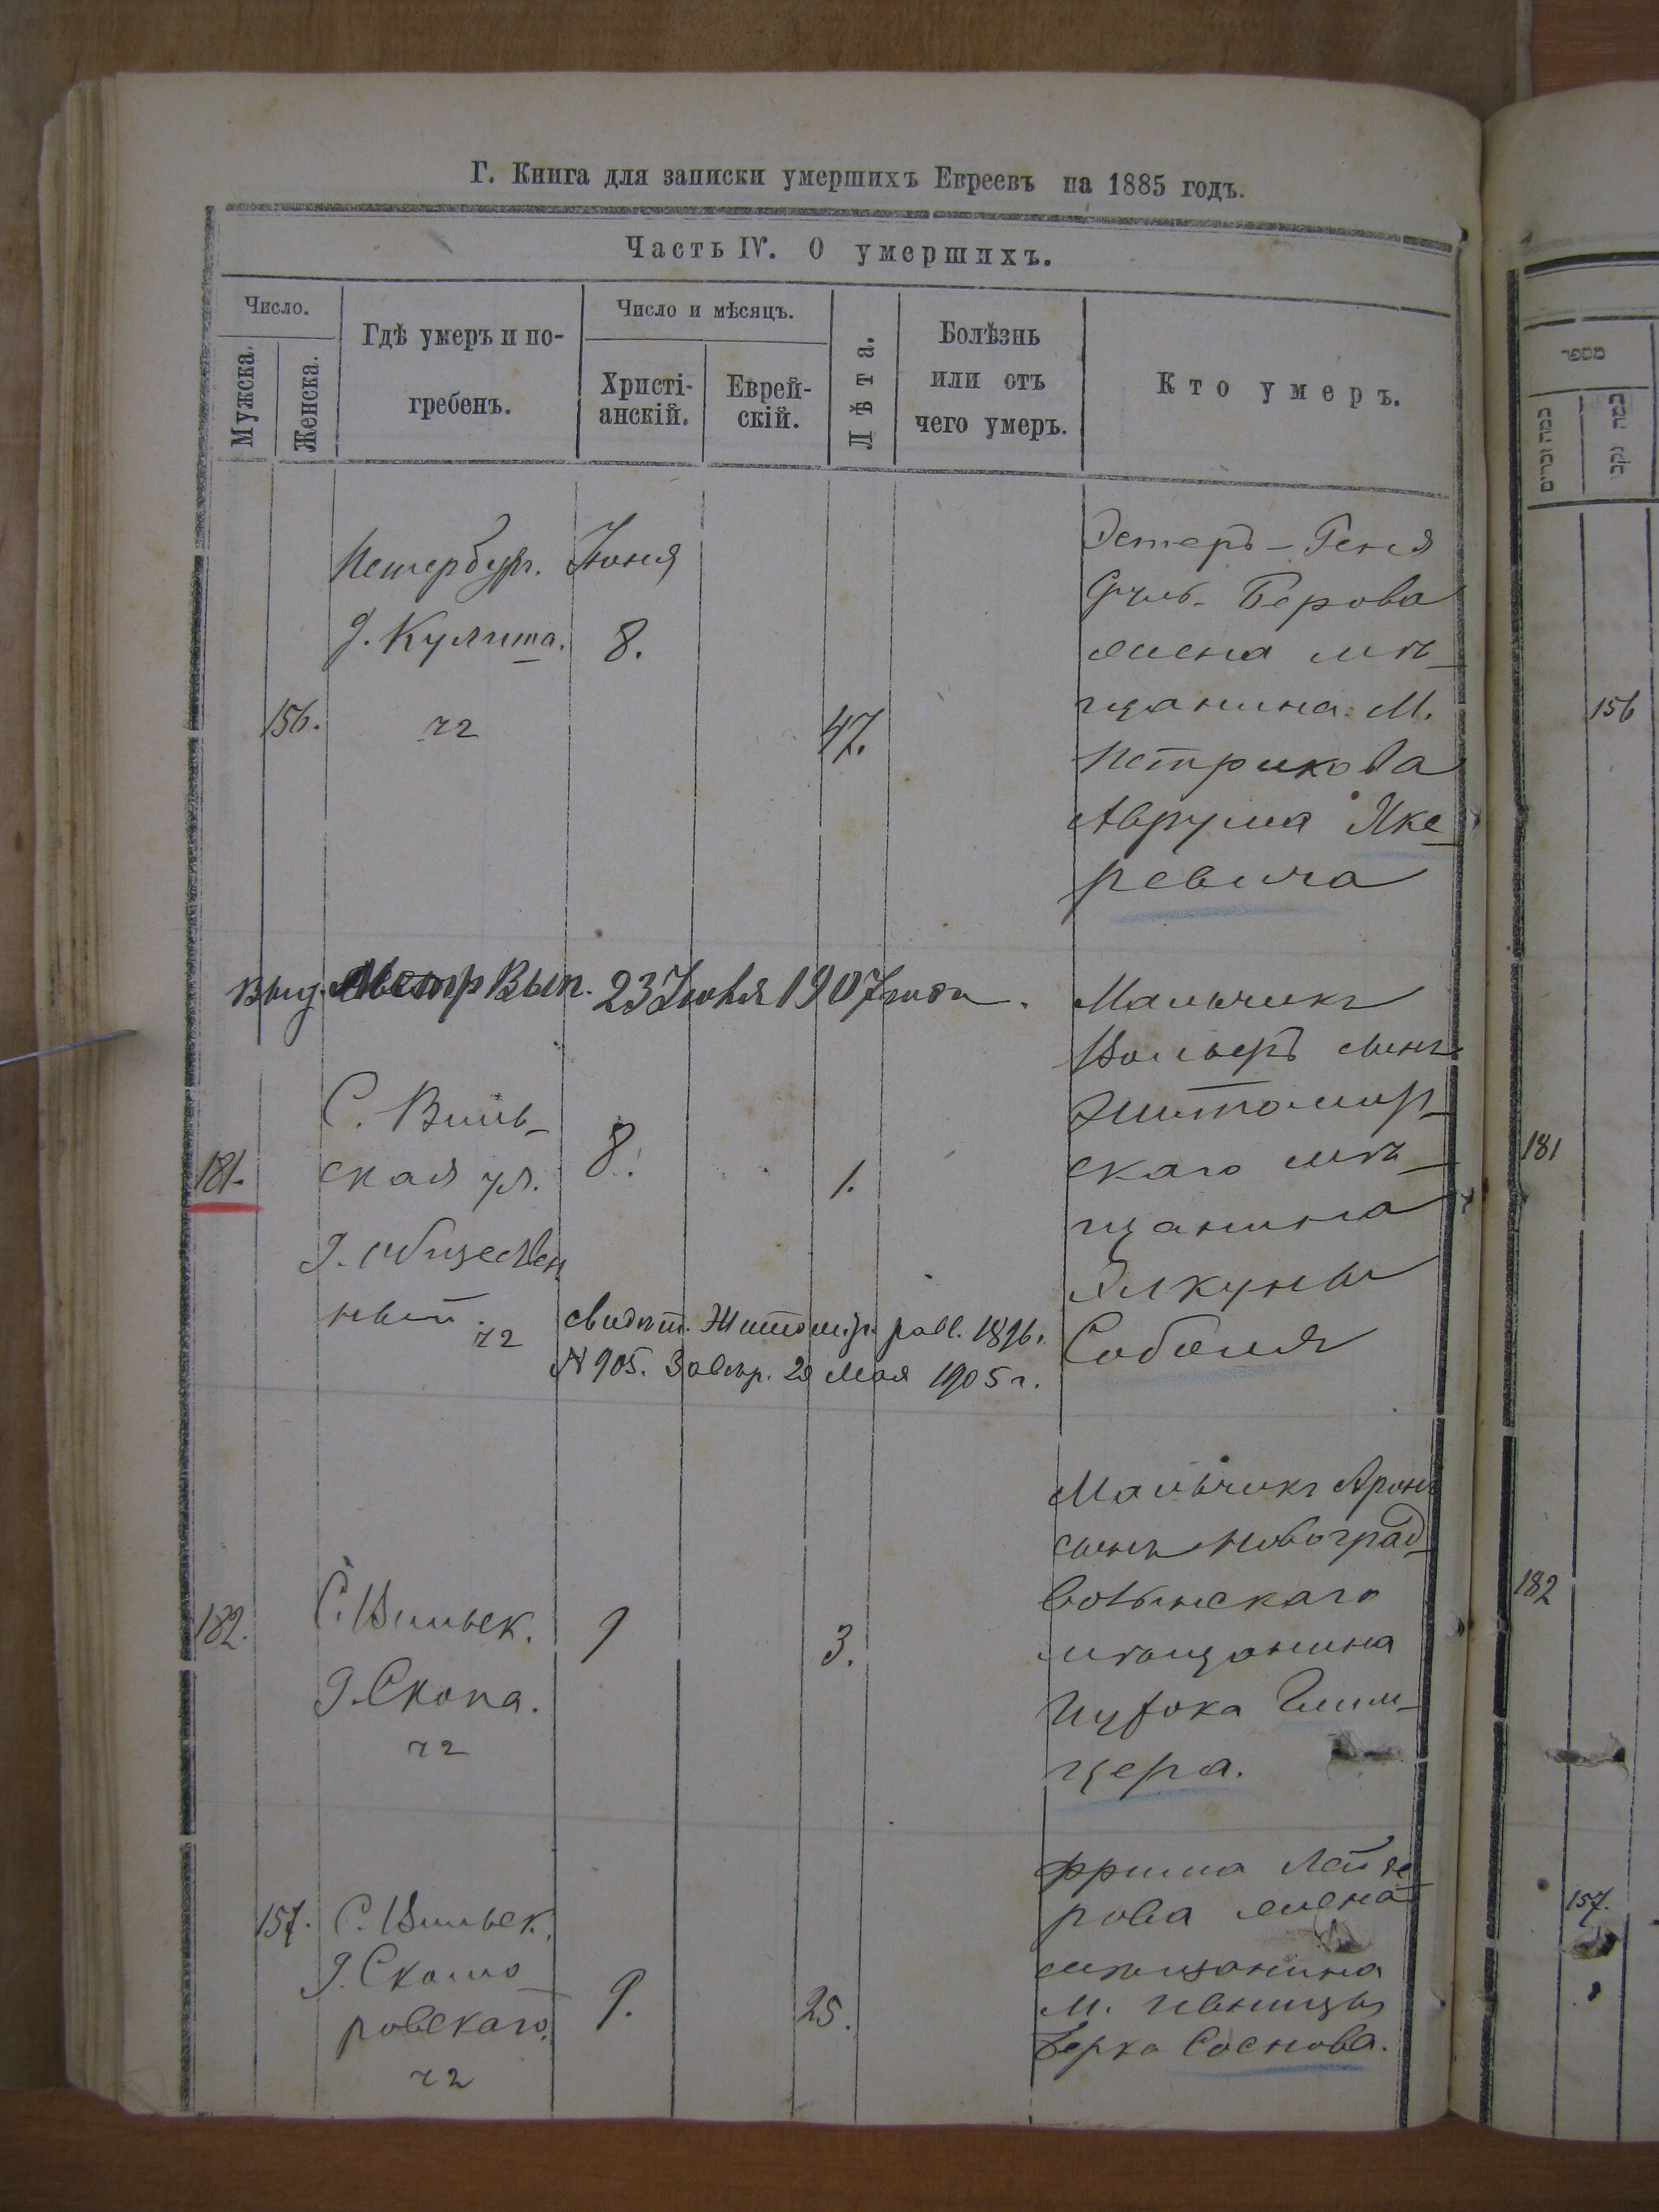 Г. Книга для записки умершихъ Евреевъ на 1885 годъ.
Часть IV. О умершихъ.
Число.
Мужска.
Женска.
Гдѣ умеръ и по-
гребенъ.
Число и мѣсяцъ.
Христі-
анскій.
Еврей-
скій.
Лѣта.
Болѣзнь
или отъ
чего умеръ.
Кто умеръ.
156.
Петербург.
д. Кулиша.
Іюня
8.
47.
Эстеръ-Геня
Берова
жена мѣ-
щанина М.
Петрикова
Аврума Яке-
ревича
выд. Метр Вып. 23 1907 года.
181.
С. Виль-
ская ул.
д. обществен
ный.
8.
1.
Мальчикъ
сынъ
Житомир-
скаго мѣ-
щанина
Элкуны
Соболя
свидѣт. Житомир. равв. 1896 г.
№ 905. Завѣр. 20 Мая 1905 г.
182.
С. Вильск.
д. Скопа.
9
3.
Мальчикъ Аронъ
сынъ Новоград-
волынскаго
мѣщанина
цера.
157.
С. Вильск.
д. Скомо
ровскаго.
9.
25.
Фрима Лейзе
рова жена
мѣщанина
М. Ивницы
Берка Соснова.
מספר
כמה זכרים
כמה נקבו
156
181
182
157.